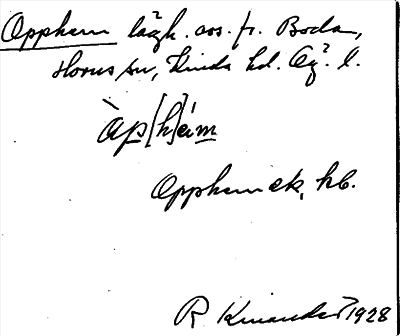 Opphem lägh. avs. fr. Boda,
Horns sn, Kinda hd. Ög. l.
àp[h]éim
Opphem ek. kb.
R Kinander 1928